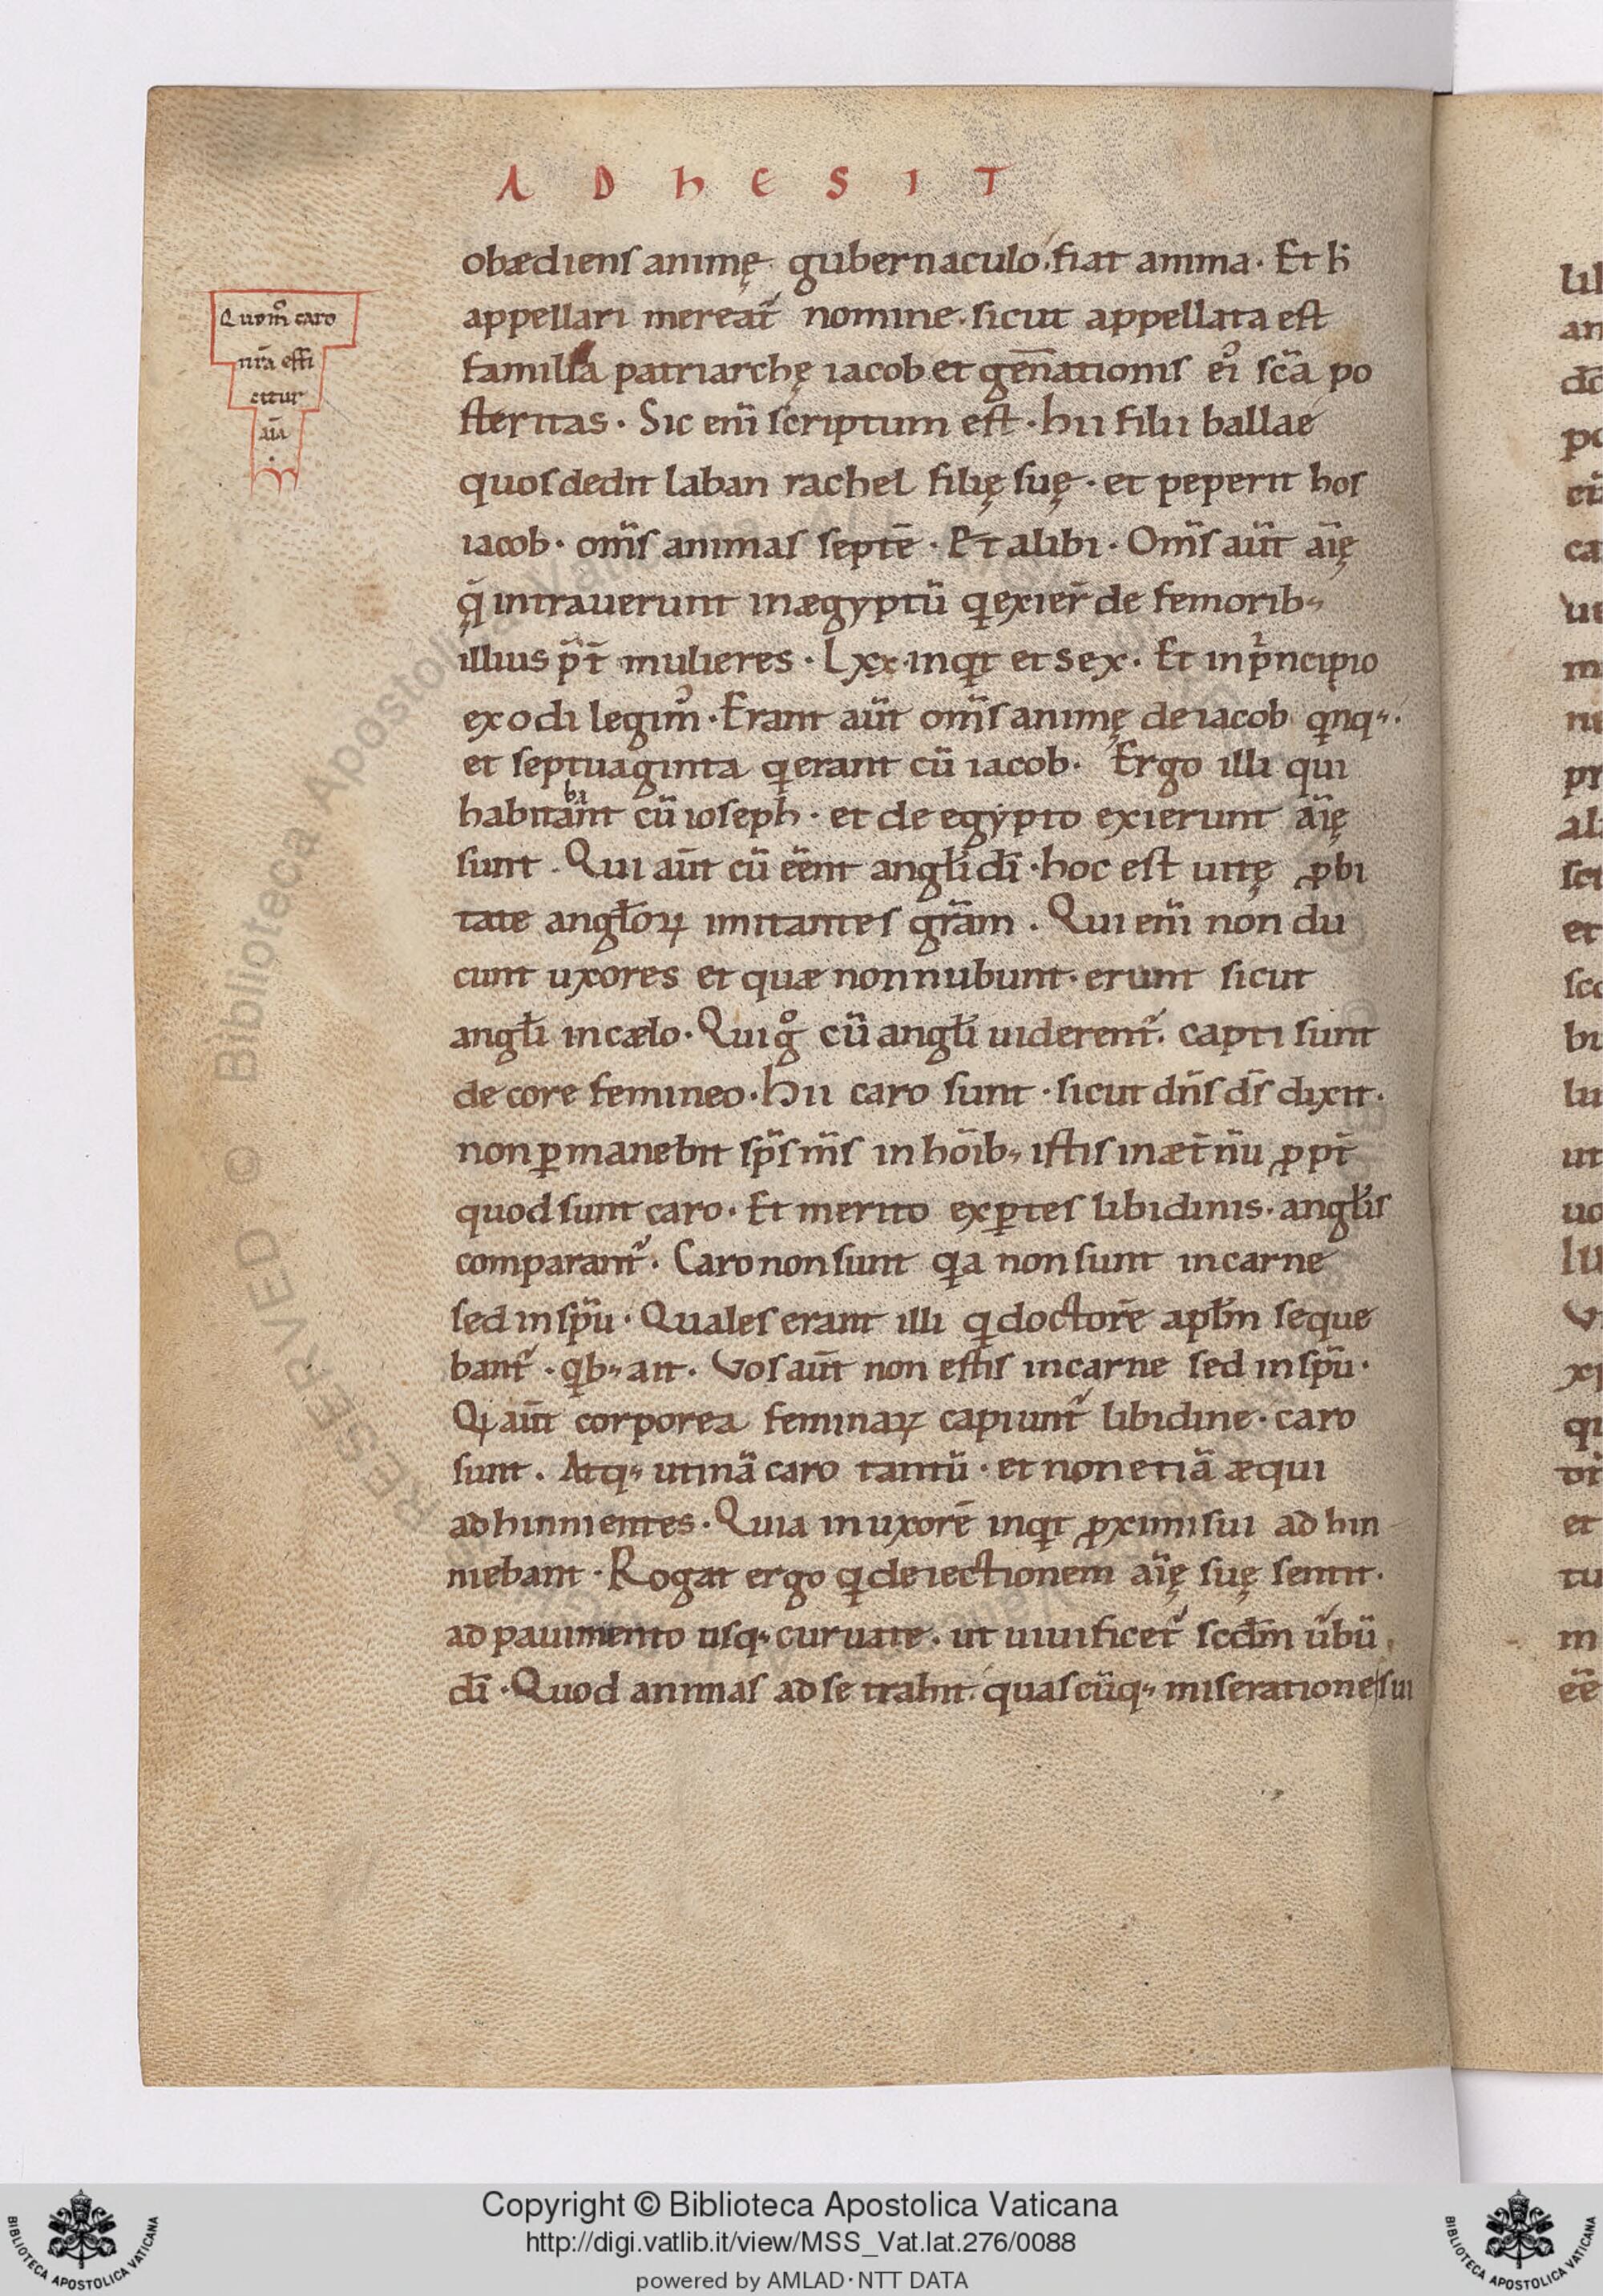 A D H E S I T
obædiens animę gubernaculo. fiat anima. Et h̃
appellari mereat̃ nomine. sicut appellata est
familia patriarchę iacob et gen̄ationis ei᾽ sc̃a po
steritas. Sic eni̅ scriptum est. hii filii ballae
quos dedit laban rachel filię suę. et peperit hos
iacob. om̃s animas septe̅. Et alibi. Om̃s aũt aı̃ę
q̨̃ intrauerunt in ægyptu̅ q̣ exier̃ de femorib᾽
illius p̃t̃ mulieres. Lxx. inq̣t et sex. Et in pⁱncipio
exodi legim᾽. Erant aũt om̃s animę de iacob q̣nq᾽.
et septuaginta q̣ erant cu̅ iacob. Ergo illi qui
bi
habitant cu̅ ioseph. et de egypto exierunt aı̃ę
sunt. Qui aũt cu̅ ẽẽnt angłi dı̃. hoc est uitę ꝓbi
tate angłoꝝ imitantes gr̃am. Qui eni̅ non du
cunt uxores et quæ non nubunt. erunt sicut
angłi in cælo. Qui gͦ cu̅ angłi uiderent̃. capti sunt
decore femineo. hii caro sunt. sicut dñs ds̃ dixit.
non ꝑmanebit sp̃s m̃s in hõib᾽ istis in æt̃nu̅ ꝓpt̃
quod sunt caro. Et merito exꝑtes libidinis. angłis
comparant̃. Caro non sunt q̣a non sunt in carne
sed in sp̃u. Quales erant illi q̣ doctore̅ apłm seque
bant̃. q̣b᾽ ait. Vos aũt non estis in carne sed in sp̃u.
Q̣ aũt corporea feminaꝝ capiunt̃ libidine. caro
sunt. Atq᾽ utina̅ caro tantu̅. et non etia̅ æqui
adhinnientes. Quia in uxore̅ inq̣t ꝓximi sui adhin
niebant. Rogat ergo q̣ deiectionem aı̃ę suę sentit.
ad pauimento usq᾽ curuate. ut uiuificet̃ scdm̃ ũbu̅
dı̃. Quod animas ad se trahit. quascu̅q᾽ miseratione sui
Quom̃ᵒ caro
nr̃a effi
citur
aı̃a
Copyright © Biblioteca Apostolica Vaticana
http://digi.vatlib.it/view/MSS_Vat.lat.276/0088
powered by AMLAD·NTT DATA
BIBLIOTECA APOSTOLICA VATICANA
BIBLIOTECA APOSTOLICA VATICANA